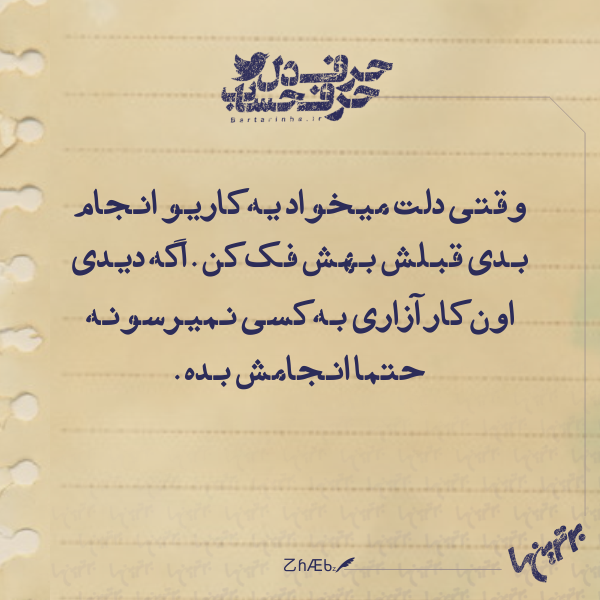 حرف دل
حرف حساب
Bartarinha.ir
وقتی دلت میخواد یه کاریو انجام
بدی قبلش بهش فک کن. اگه دیدی
اون کار آزاری به کسی نمیرسونه
حتما انجامش بده.
ZhÆbz
برترین‌ها